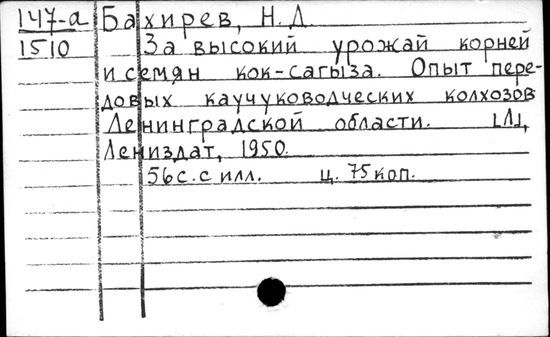 147-а Бахирев, Н.Д.
1510 За высокий урожай корней
и семян кок-сагыза. Опыт пере-
довых каучуководческих колхозов
Ленинградской области. [Л],
Лениздат, 1950.
56 с. с илл. ц. 75 коп.